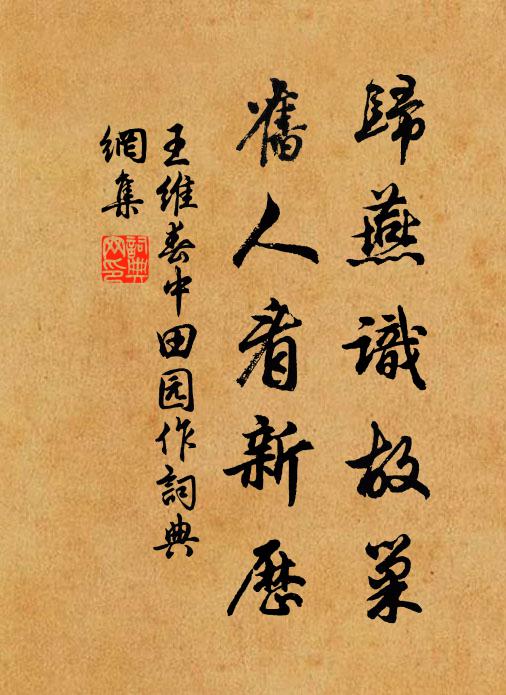 歸燕識故巢
舊人看新歷
王維春中田园作詞典
網集
詞典
网印